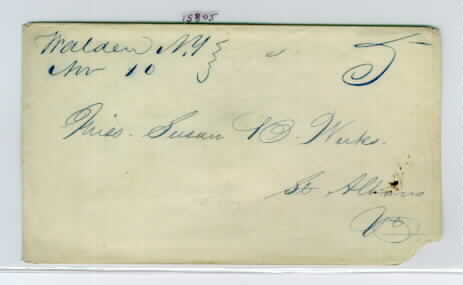 15805
Walden N.Y
Nov 10
5
Miss. Susan D. Weeks.
St Albans
Vt